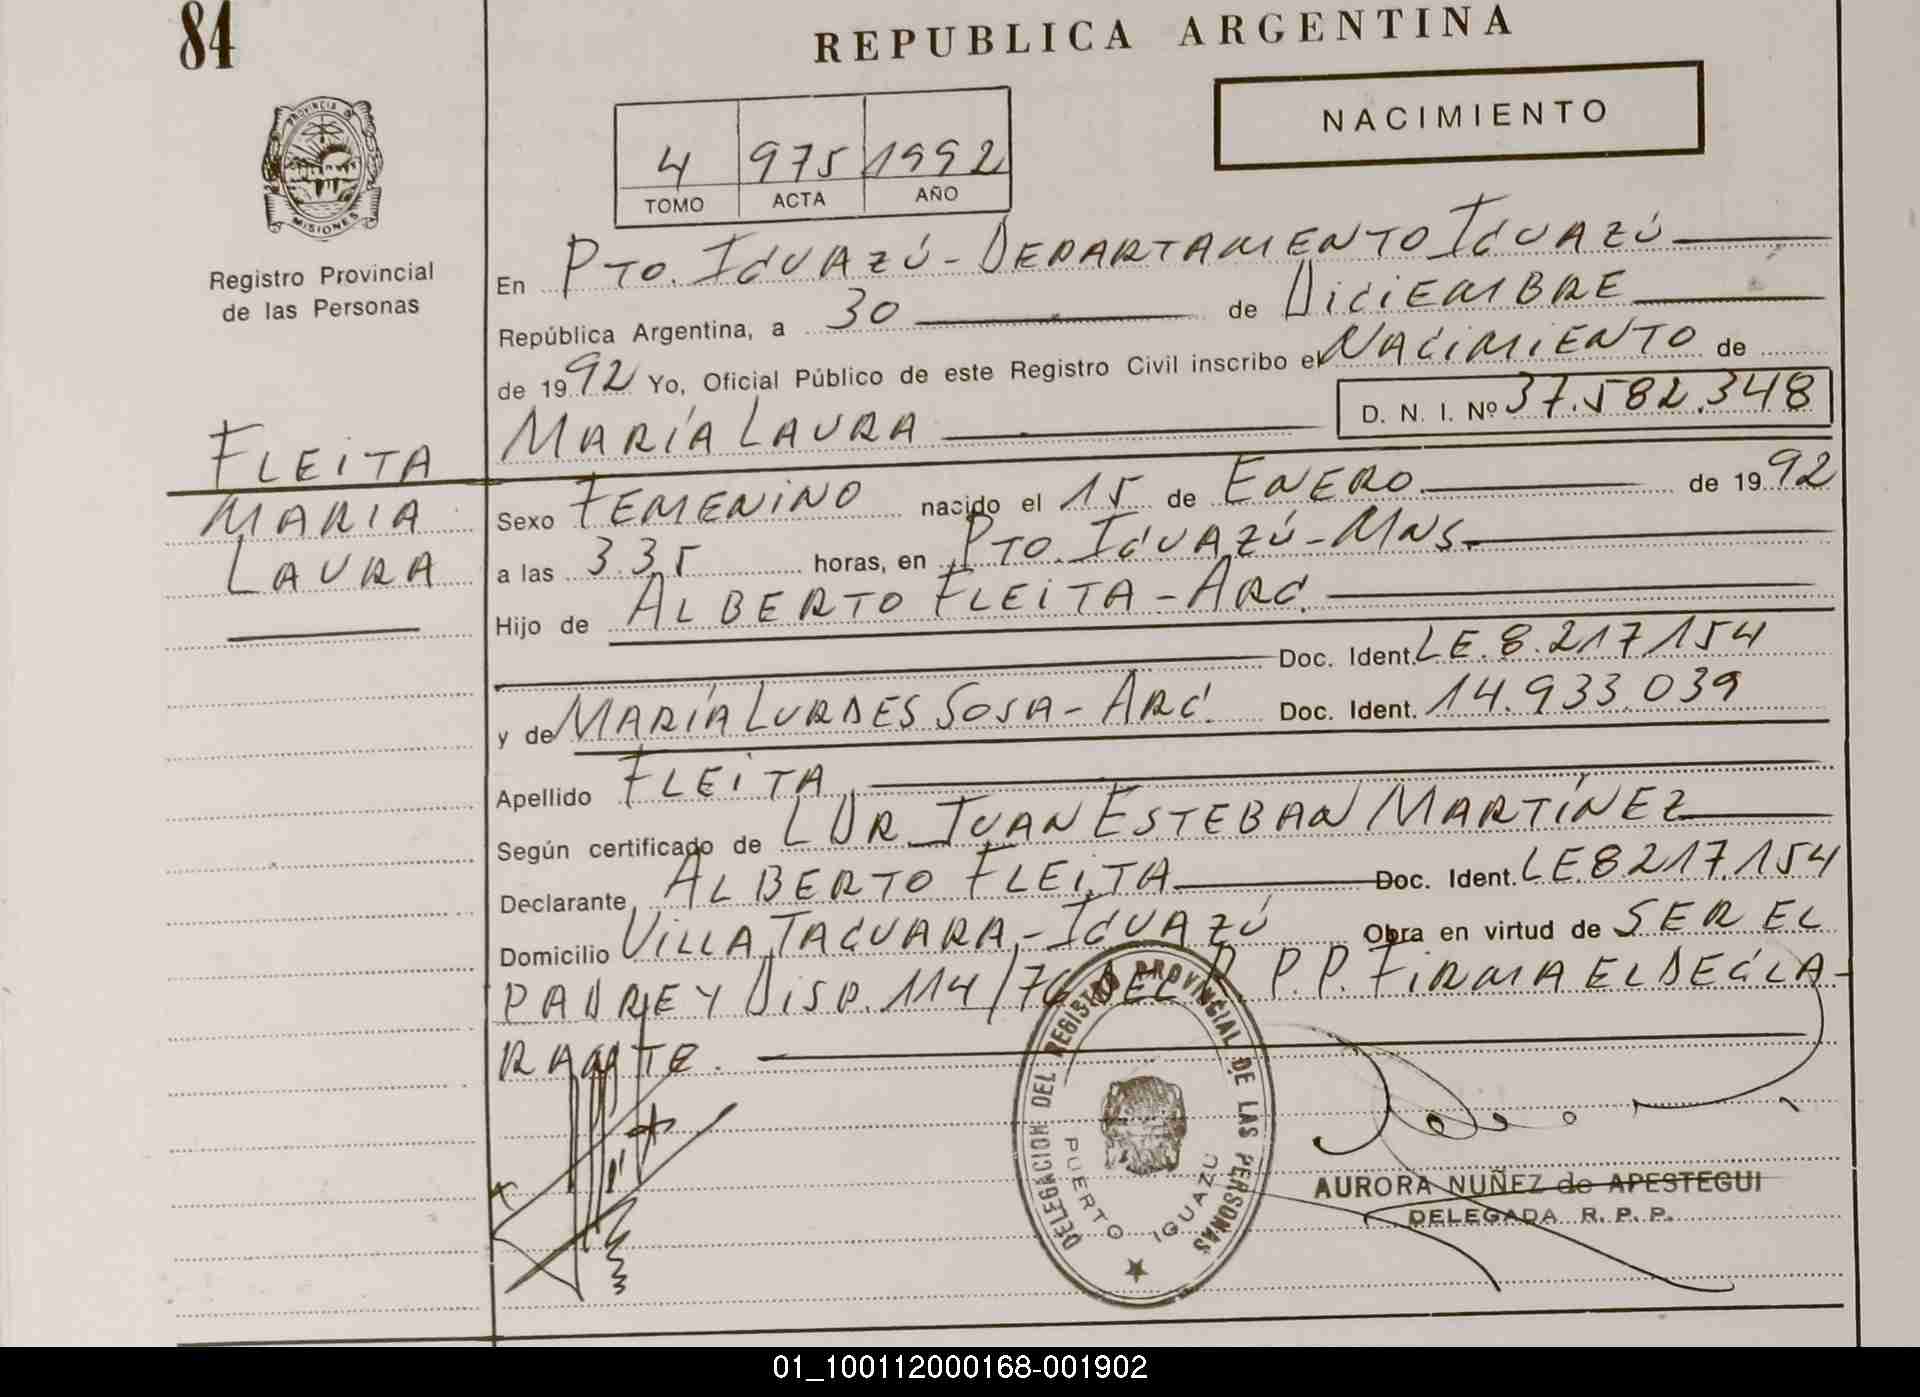 84
REPUBLICA ARGENTINA
NACIMIENTO
4 975 1992
TOMO ACTA AÑO
PROVINCIA DE
MISIONES
Registro Provincial
de las Personas
En PTO. IGUAZÚ - DEPARTAMENTO IGUAZÚ
República Argentina, a 30 de DICIEMBRE
de 1992 Yo, Oficial Público de este Registro Civil inscribo el NACIMIENTO de
MARÍA LAURA D. N. I. Nº 37.582.348
FLEITA
MARIA
LAURA
Sexo FEMENINO nacido el 15 de ENERO de 1992
a las 3.35 horas, en PTO. IGUAZÚ - MNS.
Hijo de ALBERTO FLEITA - ARG.
Doc. Ident. LE. 8.217.154
y de MARÍA LURDES SOSA - ARG. Doc. Ident. 14.933.039
Apellido FLEITA
Según certificado de DR JUAN ESTEBAN MARTÍNEZ
Declarante ALBERTO FLEITA Doc. Ident. LE.8217.154
Domicilio VILLA TACUARA - IGUAZÚ Obra en virtud de SER EL
PADRE Y DISP. 114/76 DEL R. P.P. FIRMA EL DECLA-
RANTE.
DELEGACION DEL REGISTRO PROVINCIAL DE LAS PERSONAS
PUERTO IGUAZU
AURORA NUÑEZ de APESTEGUI
DELEGADA R. P. P.
01_100112000168-001902